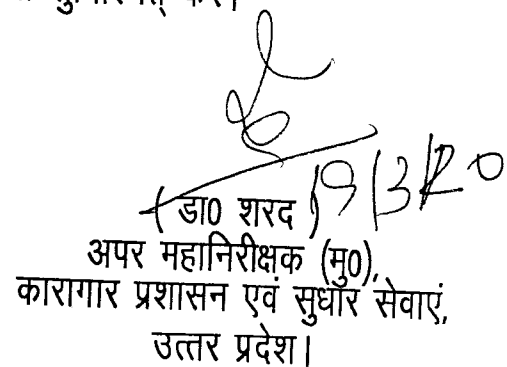 करें।
( डा0 शरद ) 9/3/20
अपर महानिरीक्षक (मु0),
कारागार प्रशासन एवं सुधार सेवाएं,
उत्तर प्रदेश।